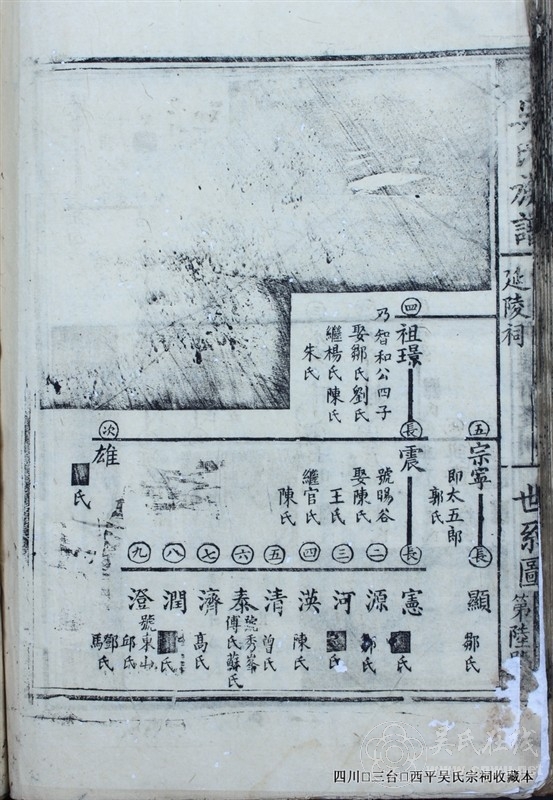 吳氏族譜
延陵祠
世系圖
第陸
五
宗寧
即太五郎
郭氏
長
顯
鄒氏
四
祖璟
乃智和公四子
娶鄒氏劉氏
繼楊氏陳氏
朱氏
長
震
號暘谷
娶陳氏
王氏
繼官氏
陳氏
長
憲
氏
二
源
氏
三
河
氏
四
渶
陳氏
五
清
曾氏
六
泰
號秀峯
傅氏蘇氏
七
濟
高氏
八
潤
氏
九
澄
號東山
邱氏
鄧氏
馬
次
雄
氏
吴氏在线
四川□三台□西平吴氏宗祠收藏本